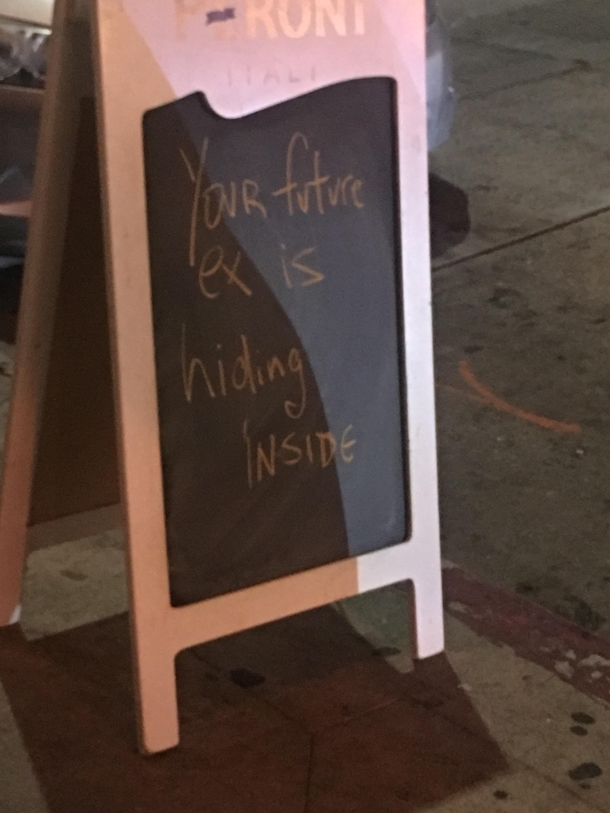 PERONI
ITALY
YOUR future
ex is
hiding
INSIDE